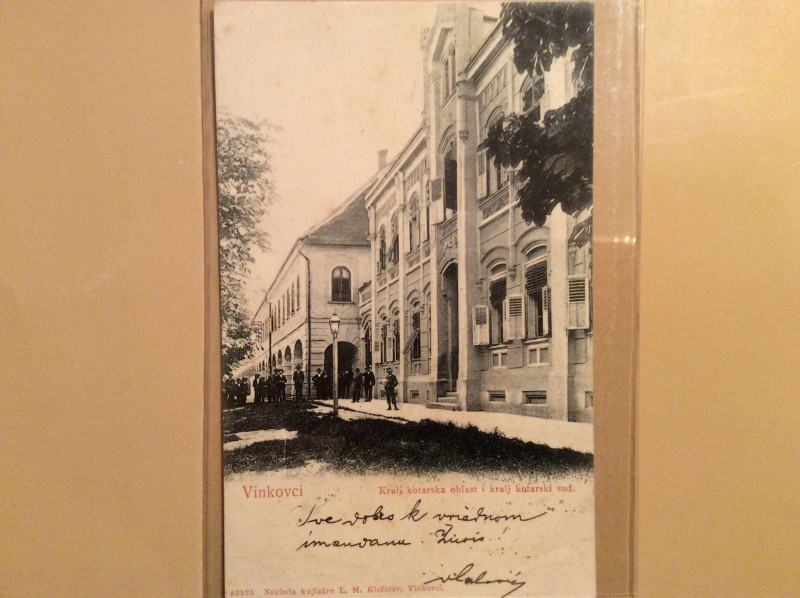 Vinkovci
Kralj kotarska oblast i kralj kotarski sud.
Sve dobro k vriednom
imendanu. Živio!
83575 Naklada knjižare L. M. Vinkovci.